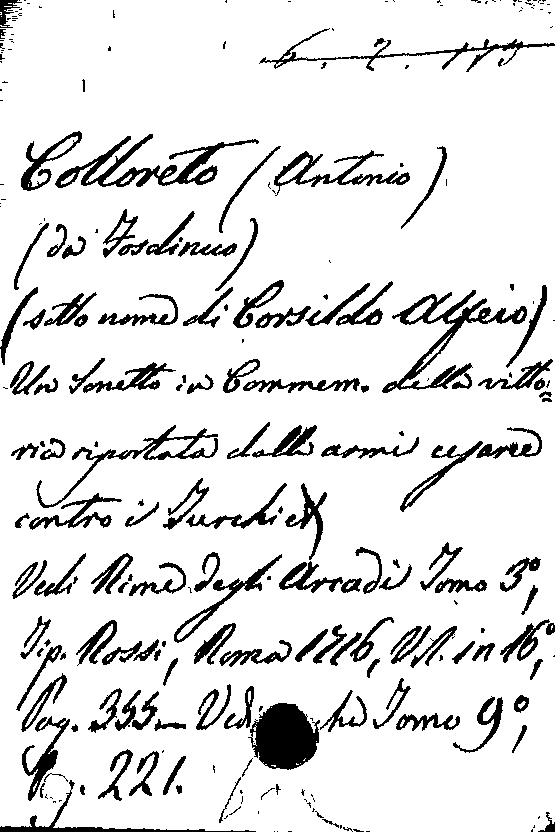 6. 7.
Colloreto (Antonio)
(da Fosdinuo)
(sotto nome di Corsildo Alfeio)
Un Sonetto in Commem. della vitto=
ria riportata dalle armi cesaree
contro i Turchi
Vedi Rime degli Arcadi Tomo 3º,
Tip. Rossi, Roma 1716, Vol. in 16º,
Pag. 355._ Vedi Tomo 9º,
Pag. 221.